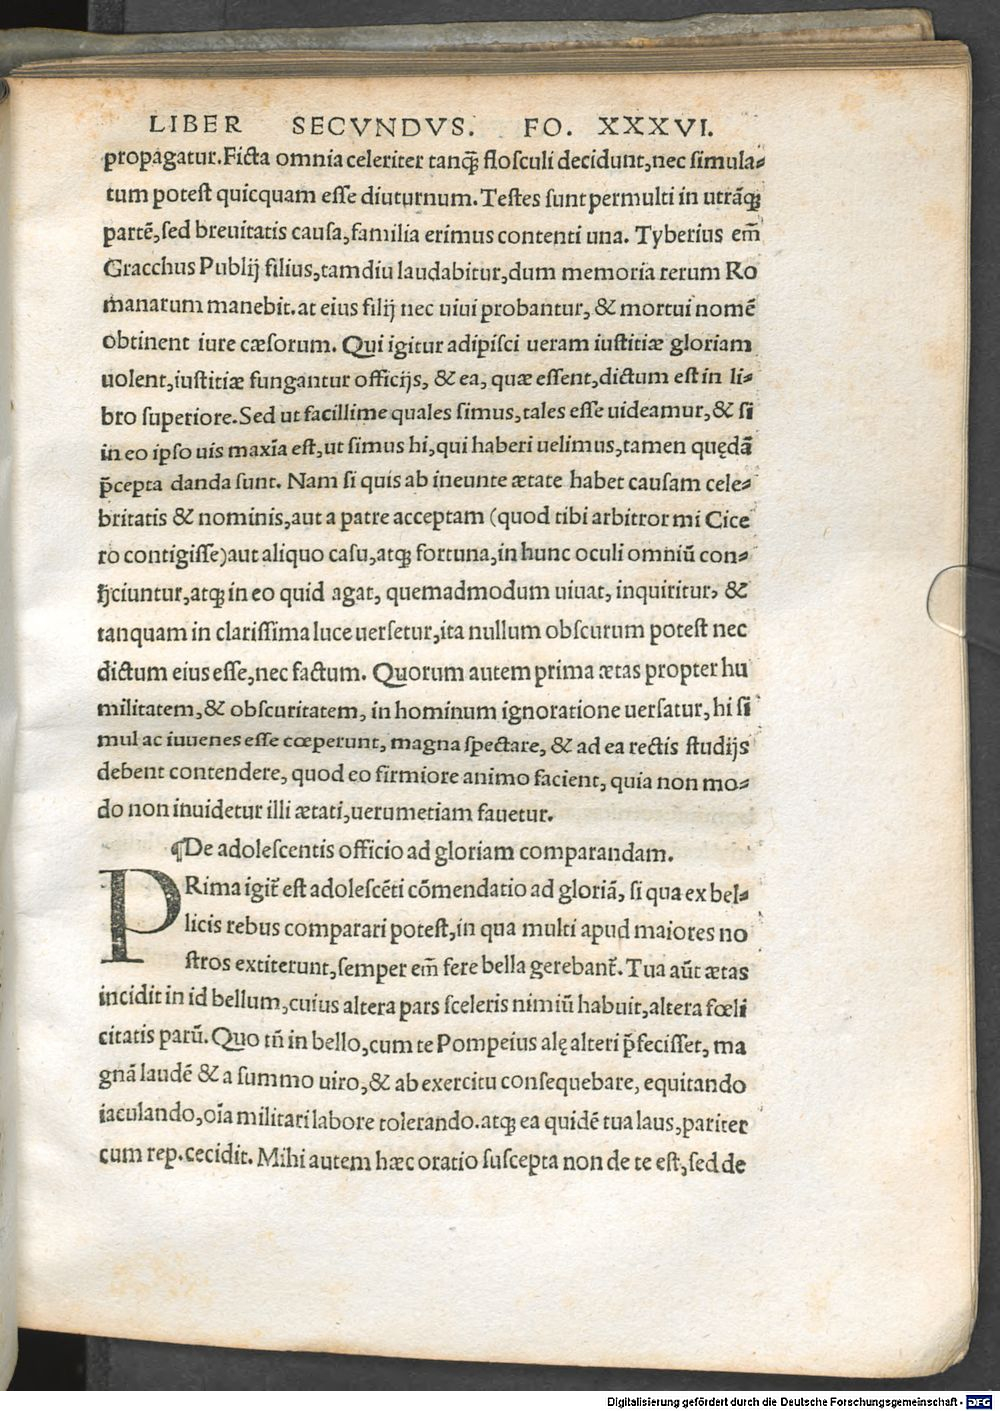 LIBER SECVNDVS. FO. XXXVI.
propagatur.Ficta omnia celeriter tanq̃ flosculi decidunt,nec simula-
tum potest quicquam esse diuturnum. Testes sunt permulti in utrãqꝫ
partẽ,sed breuitatis causa,familia erimus contenti una. Tyberius em̃
Gracchus Publij filius,tamdiu laudabitur,dum memoria rerum Ro
manarum manebit.at eius filij nec uiui probantur, & mortui nomẽ
obtinent iure cæsorum. Qui igitur adipisci ueram iustitiæ gloriam
uolent,iustitiæ fungantur officijs, & ea, quæ essent,dictum est in li-
bro superiore.Sed ut facillime quales simus,tales esse uideamur,& si
in eo ipso uis maxĩa est,ut simus hi,qui haberi uelimus,tamen quędã
p̃cepta danda sunt. Nam si quis ab ineunte ætate habet causam cele-
britatis & nominis,aut a patre acceptam (quod tibi arbitror mi Cice
ro contigisse)aut aliquo casu,atqꝫ fortuna,in hunc oculi omniũ con-
ijciuntur,atqꝫ in eo quid agat, quemadmodum uiuat, inquiritur, &
tanquam in clarissima luce uersetur,ita nullum obscurum potest nec
dictum eius esse,nec factum. Quorum autem prima ætas propter hu
militatem,& obscuritatem, in hominum ignoratione uersatur, hi si
mul ac iuuenes esse cœperunt, magna spectare, & ad ea rectis studijs
debent contendere, quod eo firmiore animo facient, quia non mo-
do non inuidetur illi ætati,uerumetiam fauetur.
¶De adolescentis officio ad gloriam comparandam.
PRima igit̃ est adolescẽti cõmendatio ad gloriã, si qua ex bel-
licis rebus comparari potest,in qua multi apud maiores no
stros extiterunt,semper em̃ fere bella gerebant̃. Tua aũt ætas
incidit in id bellum,cuius altera pars sceleris nimiũ habuit,altera fœli
citatis parũ. Quo tñ in bello,cum te Pompeius alę alteri p̃fecisset, ma
gnã laudẽ & a summo uiro,& ab exercitu consequebare, equitando
iaculando,oĩa militari labore tolerando.atqꝫ ea quidẽ tua laus,pariter
cum rep.cecidit. Mihi autem hæc oratio suscepta non de te est,sed de
Digitalisierung gefördert durch die Deutsche Forschungsgemeinschaft - DFG